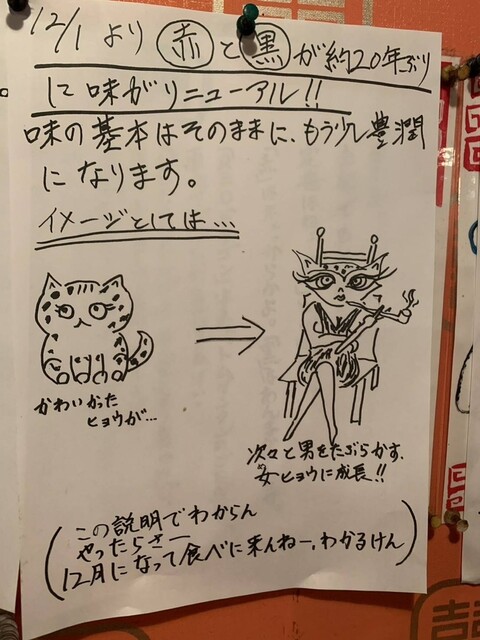 12/1 より 赤 と 黒 が 約20年ぶり
に 味がリニューアル!!
味の基本はそのままに、もう少し豊潤
になります。
イメージとしては…
かわいかった
ヒョウが…
次々と男をたぶらかす、
女ヒョウに成長!!
(この説明でわからん
やったらさー
12月になって食べに来んねー。わかるけん)